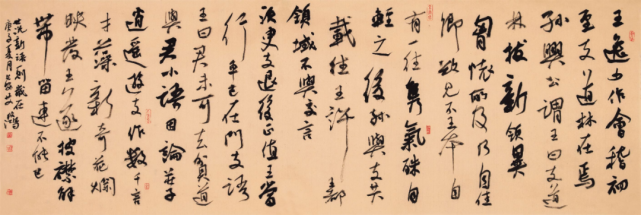 王逸少作會稽初
至支道林在焉
孫興公謂王曰支道
林拔新領異
胸懷所及乃自佳
卿欲見不王本自
有一往雋氣殊自
輕之後孫與支共
載往王許都
領域不與交言
須臾支退後正值王當
行車已在門支語
王曰君未可去貧道
與君小語因論莊子
逍遙遊支作數千言
才藻新奇花爛
映發王遂披襟解
帶留連不能已
新語一則
夏月